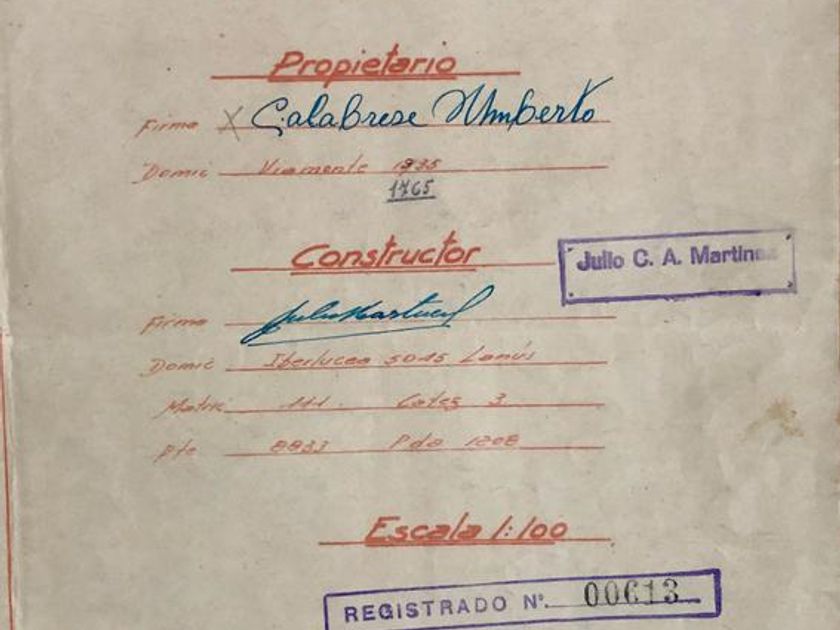 Propietario
Firma X Calabrese Umberto
Domic Viamonte 1935
1765
Constructor
Julio C. A. Martinez
Firma
Domic Iberlucea 5045 Lanús
Matric 111. Categ 3
Pte 8833 Pda 1208
Escala 1:100
REGISTRADO Nº. 00613